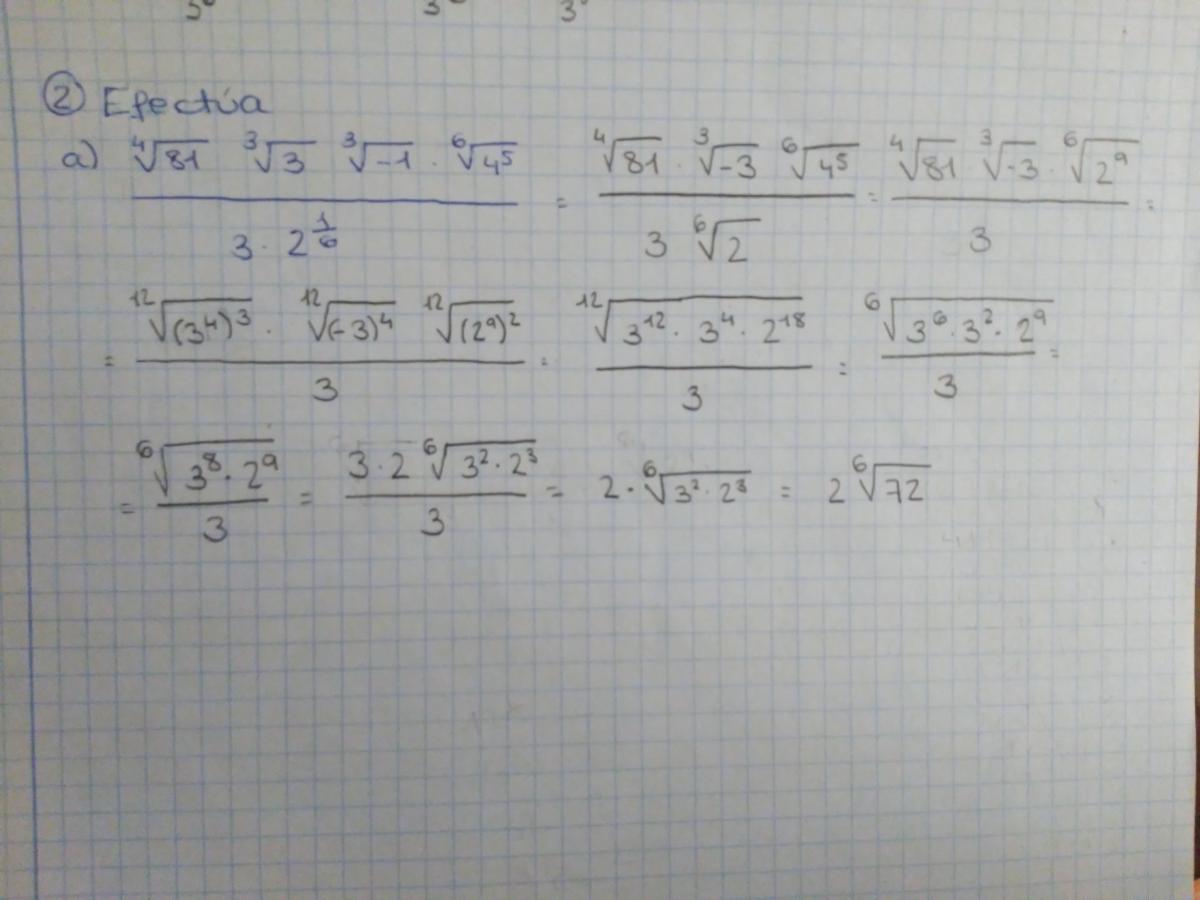 ② Efectúa
a) \frac{\sqrt[4]{81} \sqrt[3]{3} \sqrt[3]{-1} \cdot \sqrt[6]{4^5}}{3 \cdot 2^{\frac{1}{6}}} = \frac{\sqrt[4]{81} \cdot \sqrt[3]{-3} \sqrt[6]{4^5}}{3 \sqrt[6]{2}} = \frac{\sqrt[4]{81} \sqrt[3]{-3} \cdot \sqrt[6]{2^9}}{3} =
= \frac{\sqrt[12]{(3^4)^3} \cdot \sqrt[12]{(-3)^4} \sqrt[12]{(2^9)^2}}{3} = \frac{\sqrt[12]{3^{12} \cdot 3^4 \cdot 2^{18}}}{3} = \frac{\sqrt[6]{3^6 \cdot 3^2 \cdot 2^9}}{3} =
= \frac{\sqrt[6]{3^8 \cdot 2^9}}{3} = \frac{3 \cdot 2 \sqrt[6]{3^2 \cdot 2^3}}{3} = 2 \cdot \sqrt[6]{3^2 \cdot 2^3} = 2 \sqrt[6]{72}